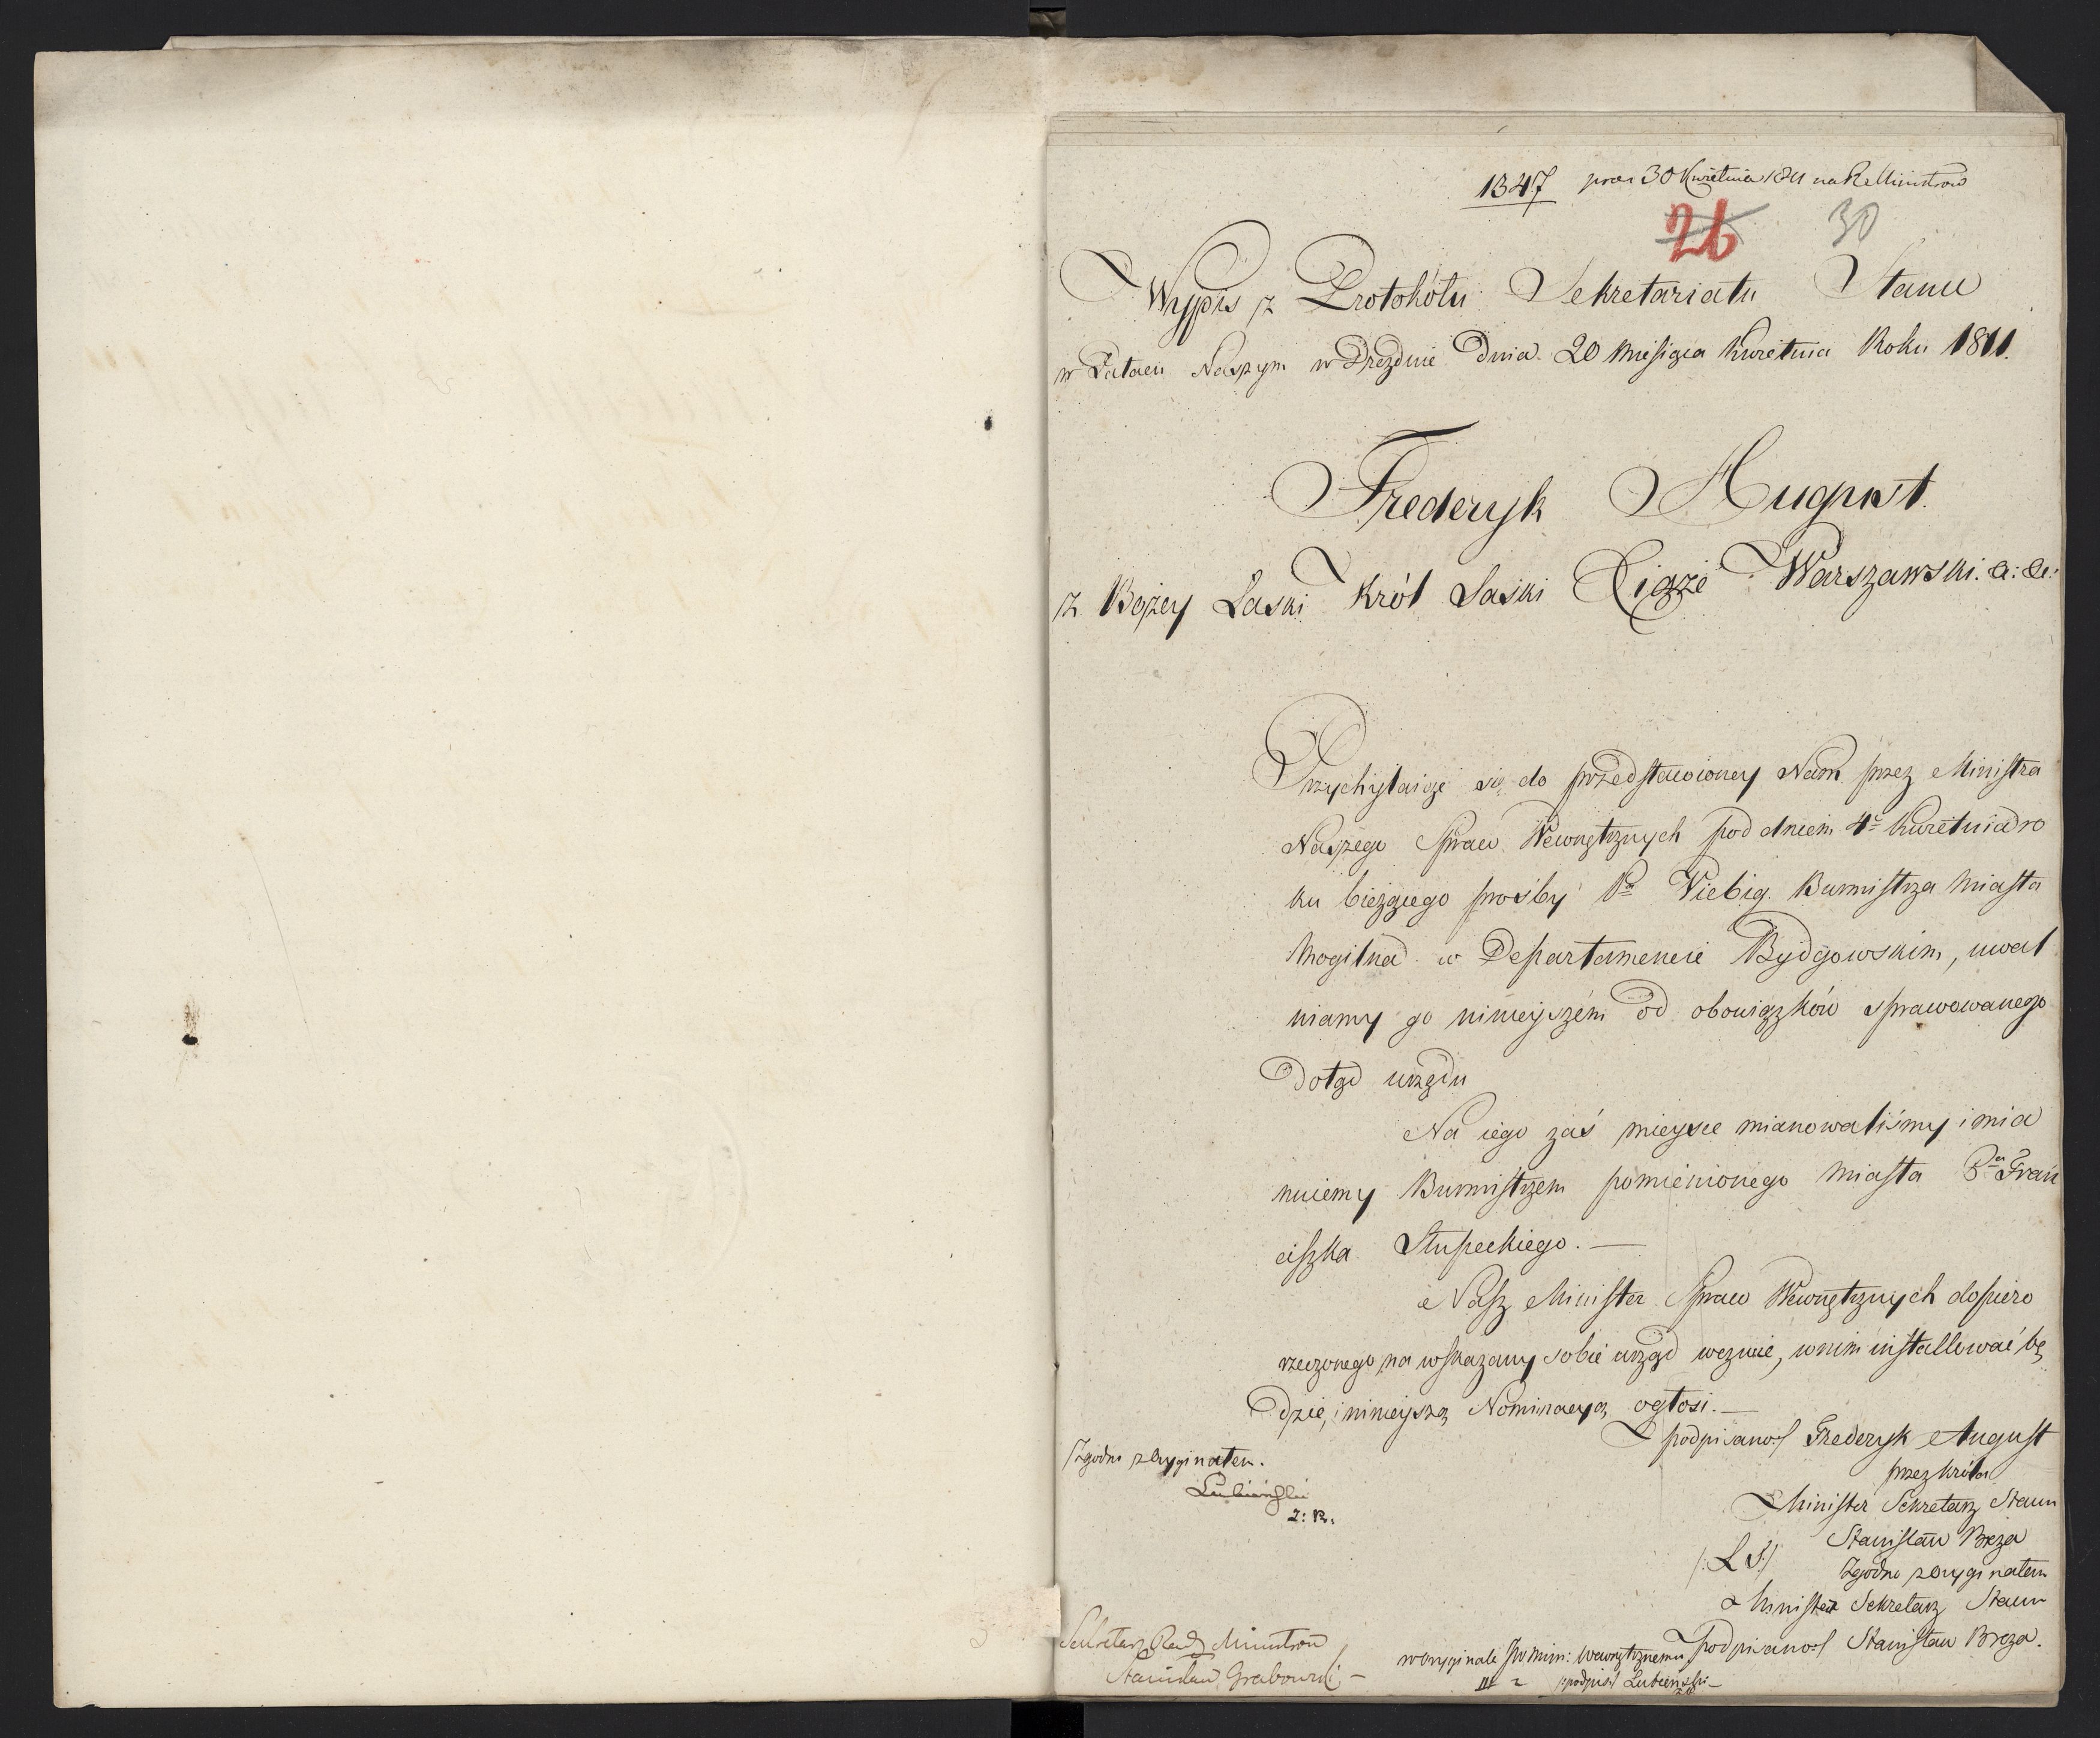 1347 prez 30 Kwietnia 1811 na R Ministrów
26 30
Wypis z Protokółu Sekretariatu Stanu
w Pałacu Naszym w Dreznie Dnia 20 Miesiąca Kwietnia Roku 1811.
Frederyk August.
z Bożey Łaski Król Saski Xiąże Warszawski. &: &:
Przychylaiąc się do przedstawioney Nam przez Ministra
Naszego Spraw Wewnętrznych pod dniem 4º Kwietnia ro
ku bieżącego prośby Pª Viebig. Burmistrza Miasta
Mogilna w Departamencie Bydgowskim, uwal
niamy go ninieyszém od obowiązków sprawowanego
dotąd urzędu
Na iego zaś mieysce mianowaliśmy i mia
nuiemy Burmistrzem pomienionego Miasta Pna Fran
ciszka Słupeckiego. —
Nasz Minister Spraw Wewnętrznych dopiero
rzeczonego na wskazany sobie urząd wezwie, w nim installować bę
dzie, i ninieyszą Nominacyą ogłosi. —
podpisano:/ Frederyk August
przez Króla
Minister Sekretarz Stanu
Stanisław Breza
/: L S:/ Zgodno z oryginałem
Minister Sekretarz Stanu
podpisano:/ Stanisław Breza.
Zgodno z Oryginałem.
Lubieński
Sekretarz Rady Ministrów
Stanisław Grabowski —
w oryginale JW Min: Wewnętrznemu
/:podpis:/ Lubieński —